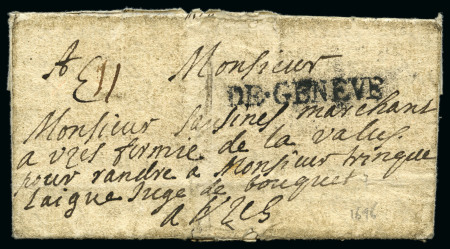 A Monsieur
11
DE·GENEVE
Monsieur marchant
a vzes fermie de la valus
pour randre a Monsieur tringue
laigue Juge de bouquet
a VZES
1696